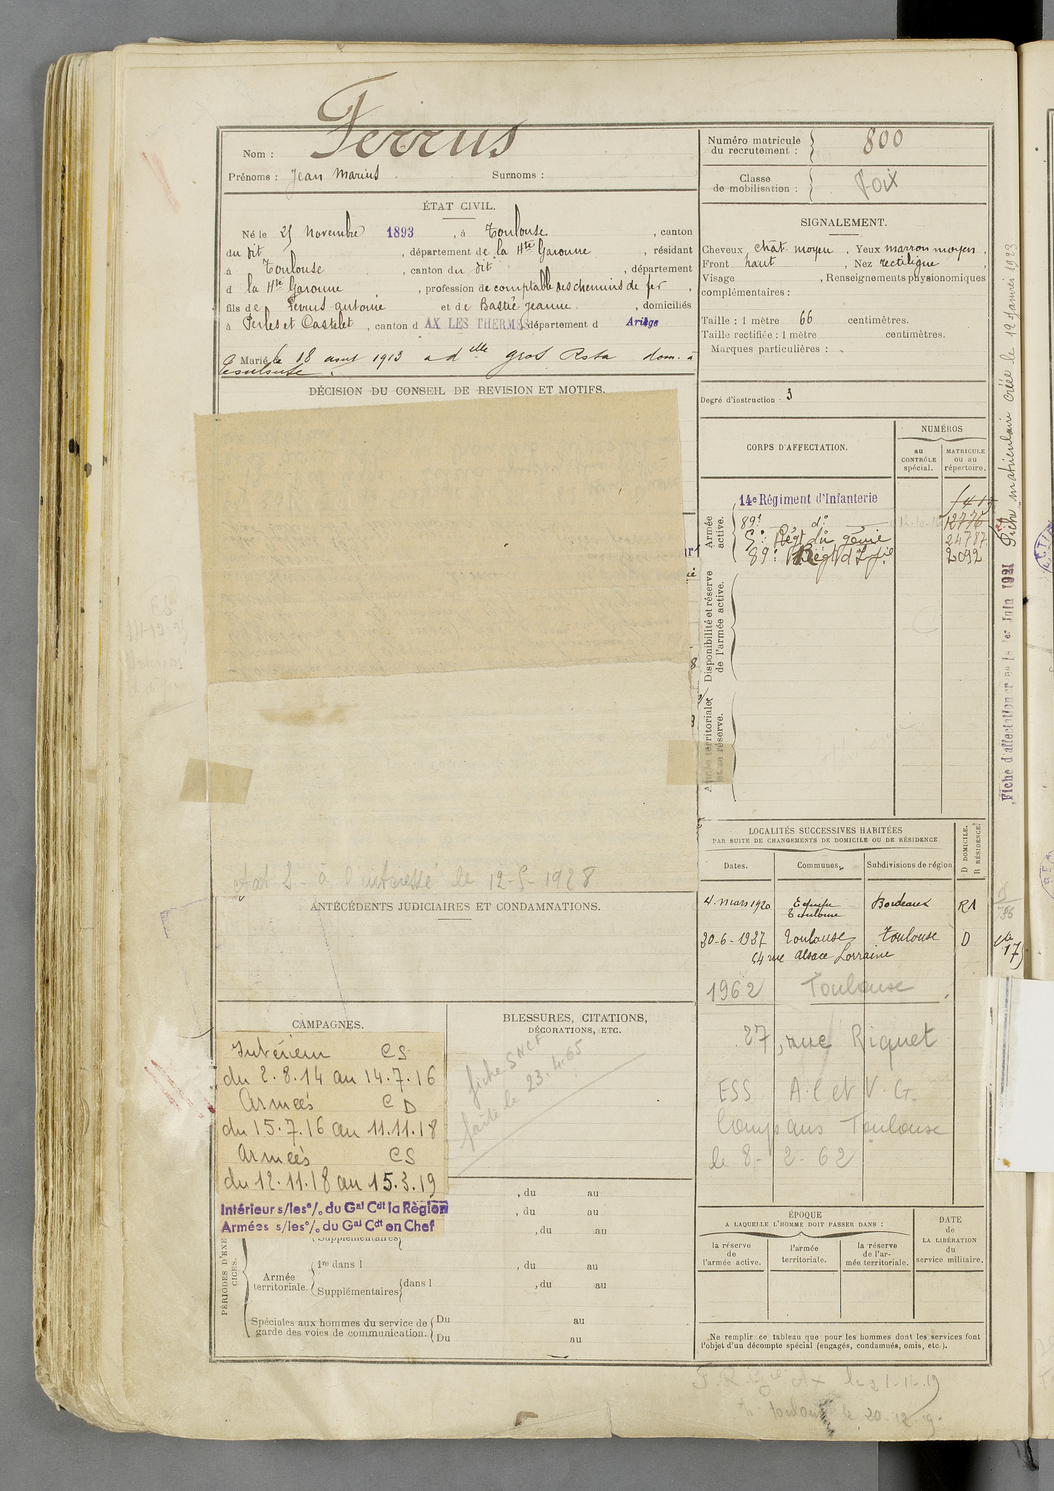 Nom : Ferrus
Prénoms : Jean Marius Surnoms :
Numéro matricule
du recrutement : 800
Classe
de mobilisation : Foix
ÉTAT CIVIL.
Né le 25 Novembre 1893, à Toulouse, canton
du dit, département de la Hte Garonne, résidant
à Toulouse, canton du dit, département
d la Hte Garonne, profession de comptable des chemins de fer,
fils de Ferrus antoine et de Bastié Jeanne, domiciliés
à Perles et Castelet, canton d AX LES THERMES département d Ariège
Marié le 18 aout 1913 à dlle gros Rosa dom. à
Toulouse.
SIGNALEMENT.
Cheveux chat. moyen. Yeux marron moyen,
Front haut, Nez rectiligne,
Visage , Renseignements physionomiques
complémentaires :
Taille : 1 mètre 66 centimètres.
Taille rectifiée : 1 mètre centimètres.
Marques particulières :
Degré d'instruction : 3
DÉCISION DU CONSEIL DE REVISION ET MOTIFS.
CORPS D'AFFECTATION.
NUMÉROS
au
CONTRÔLE
spécial.
MATRICULE
ou au
répertoire.
Armée
active.
14e Régiment d'Infanterie
89e do 12776
5e Régt du génie 24787
89e Régt d'Ifie 2092
Disponibilité et réserve
de l'armée active.
Armée territoriale
et sa réserve.
Fiche d'affectation le 1er Juin 1921
Fiche matriculaire créée le 12 Janvier 1923
à l'intéressé le 12-5-1928
ANTÉCÉDENTS JUDICIAIRES ET CONDAMNATIONS.
LOCALITÉS SUCCESSIVES HABITÉES
PAR SUITE DE CHANGEMENTS DE DOMICILE OU DE RÉSIDENCE.
Dates. Communes. Subdivisions de région
D DOMICILE.
R RÉSIDENCE.
4 mars 1920 Toulouse Bordeaux
30-6-1937 Toulouse Toulouse D
rue Alsace Lorraine
1962 Toulouse
27, rue Riquet
ESS A.C et V.G.
Compans Toulouse
le 8-2-62
CAMPAGNES.
Intérieur CS
du 2.8.14 au 14.7.16
Armées CD
du 15.7.16 au 11.11.18
Armées CS
du 12.11.18 au 15.3.19
Intérieur s/les o/o du Gal Cdt la Région
Armées s/les o/o du Gal Cdt en Chef
BLESSURES, CITATIONS,
DÉCORATIONS, ETC.
fiche SNCF
faite le 23.4.65
, du au
, du au
Supplémentaires , du au
PÉRIODES D'EXERCICES.
Armée
territoriale.
1re dans l , du au
Supplémentaires dans l , du au
Spéciales aux hommes du service de
garde des voies de communication.
Du au
Du au
ÉPOQUE
A LAQUELLE L'HOMME DOIT PASSER DANS :
la réserve
de
l'armée active.
l'armée
territoriale.
la réserve
de l'ar-
mée territoriale.
DATE
de
LA LIBÉRATION
du
service militaire.
Ne remplir ce tableau que pour les hommes dont les services font
l'objet d'un décompte spécial (engagés, condamnés, omis, etc.).